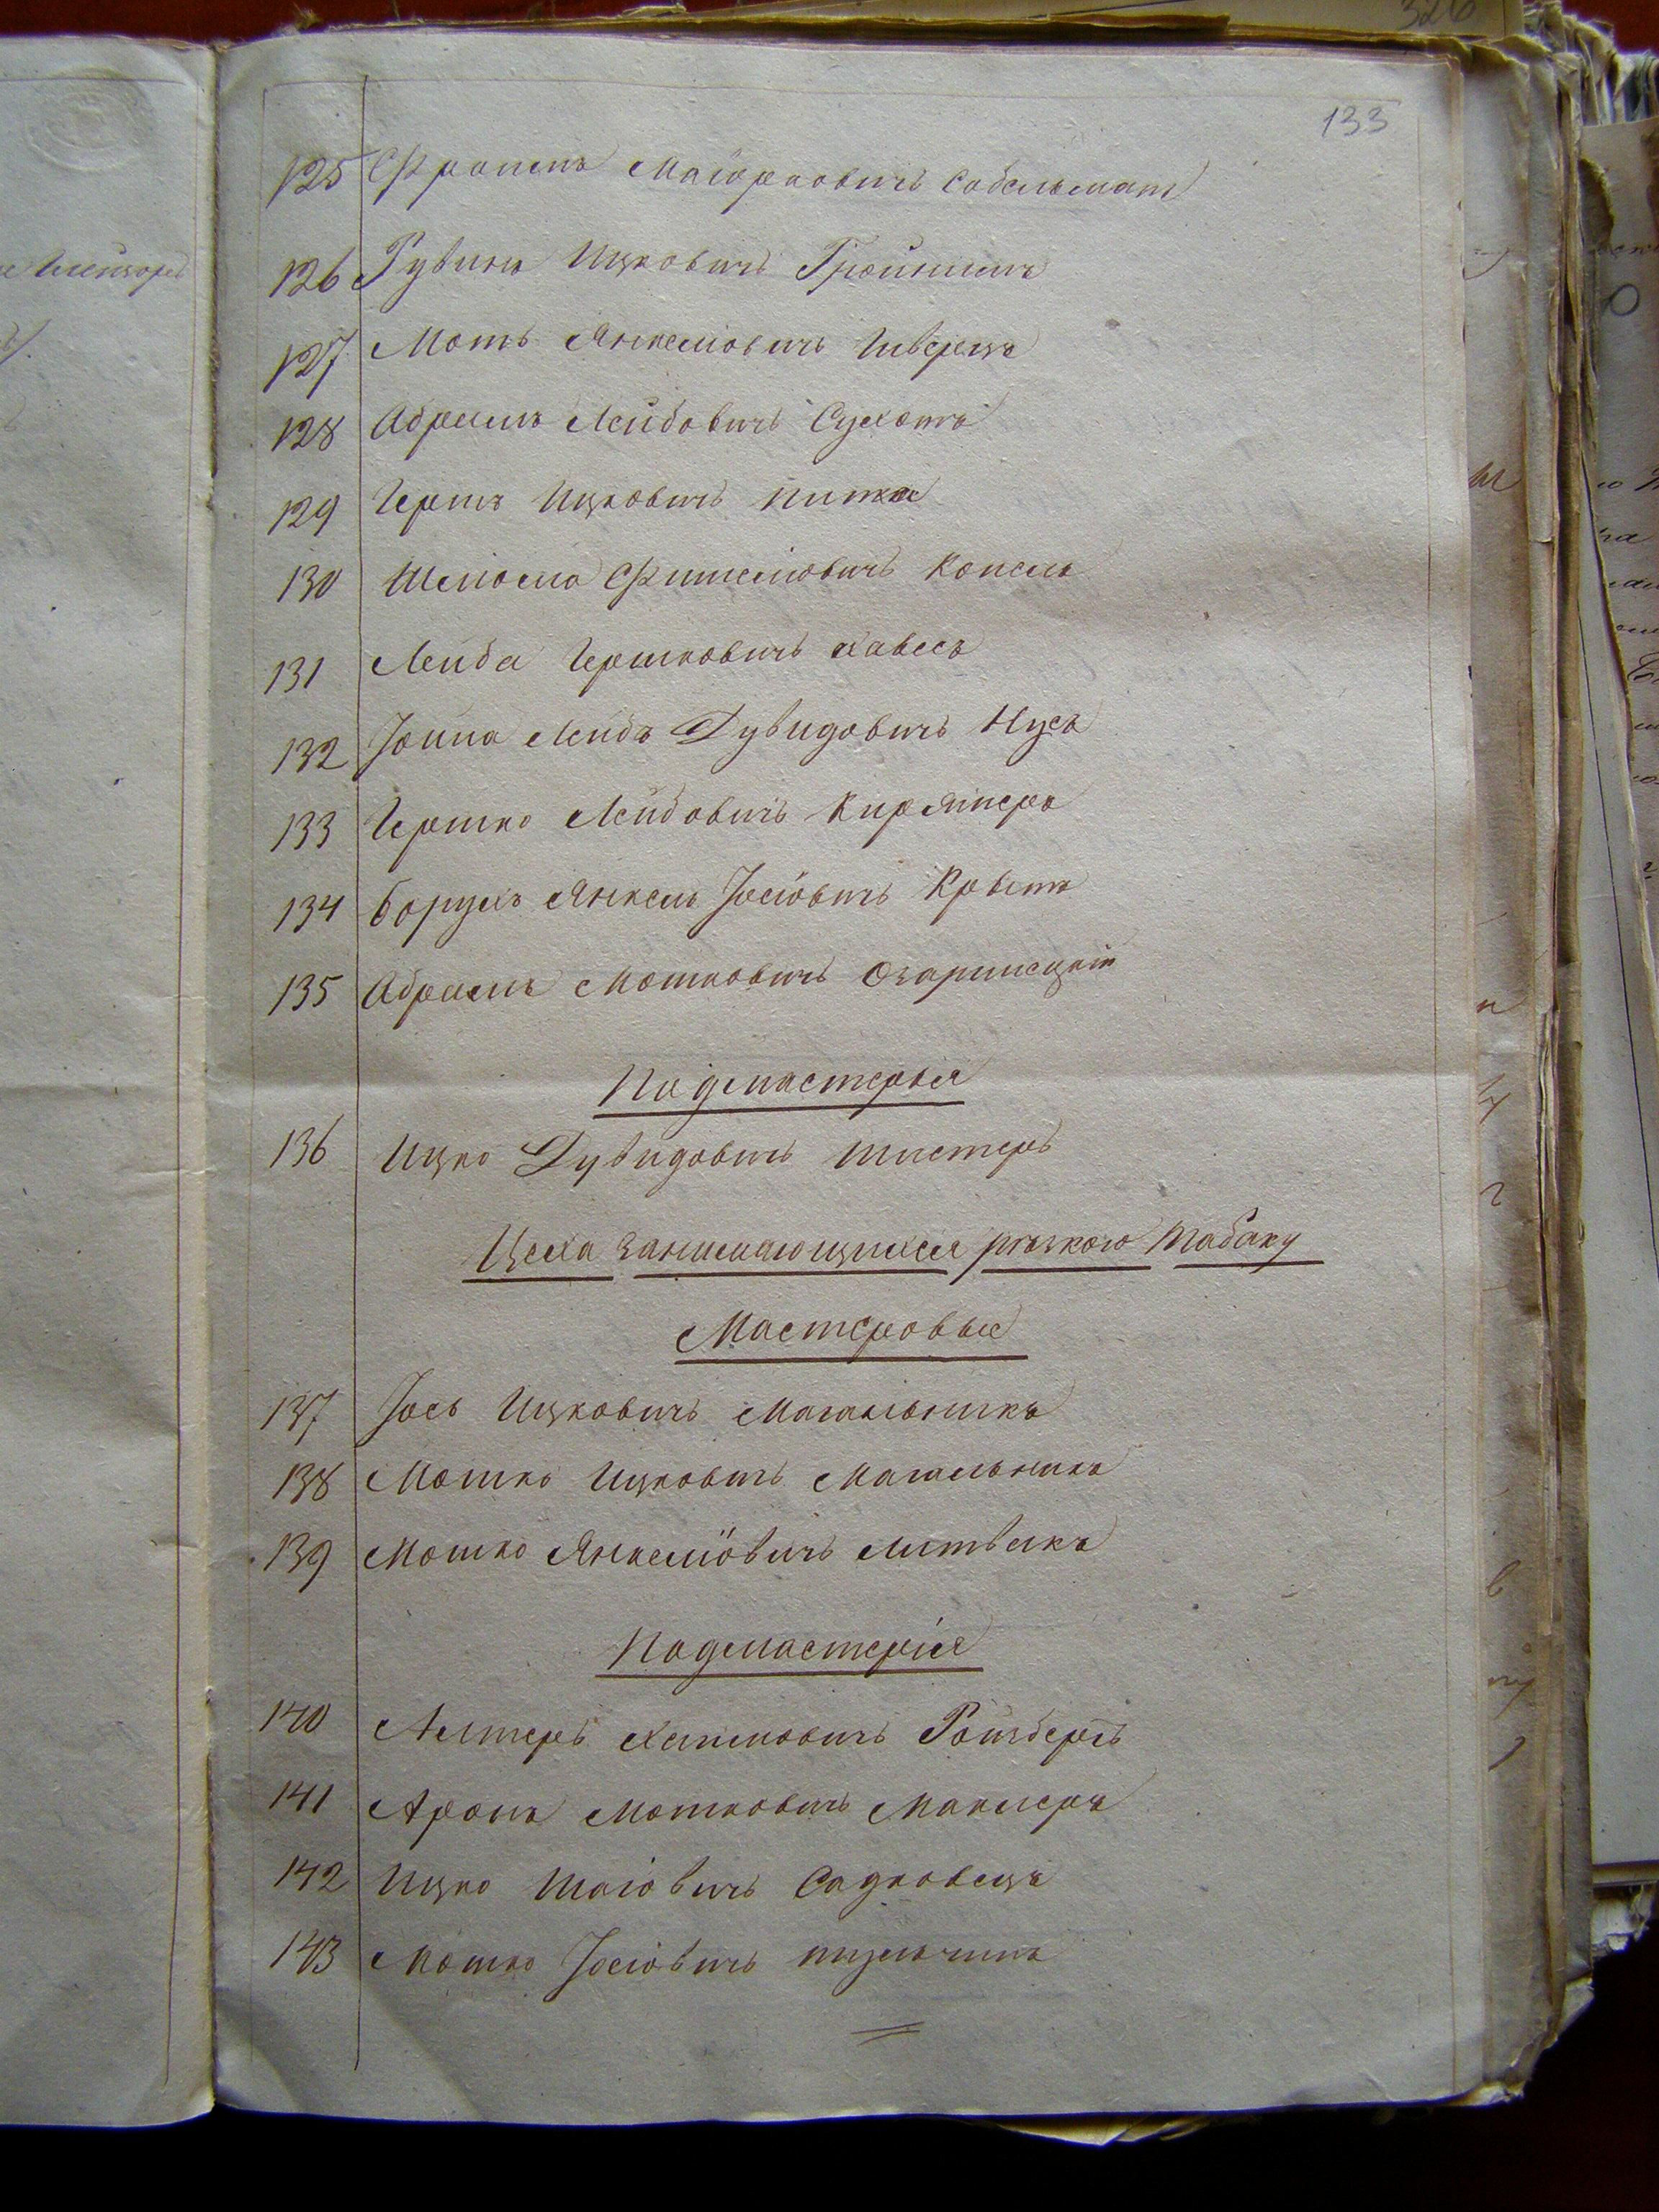 133
125 Фроимъ Маіорковичъ Собельман
126 Рувинъ Ицковичъ Гройнимъ
127 Моть Янкеліовичъ Шверцъ
128 Абрамъ Лейбовичъ Сухотъ
129 Герть Ицковичъ
130 Шліома Фишеліовичъ Копель
131 Лейба Гершковичъ Хавесъ
132 Іойна Лейбъ Дувидовичъ Нусъ
133 Гершко Лейбовичъ
134 Борухъ Янкель Іосіовичъ
135 Абрамъ Мошковичъ Озаринецкій
Подмастерья
136 Ицко Дувидовичъ Шистеръ
Цеха занимающихся резкою табаку
Мастеровые
137 Іось Ицковичъ Магальникъ
138 Мошко Ицковичъ Магальникъ
139 Мошко Янкеліовичъ Литвакъ
Подмастерія
140 Алтеръ Хаимовичъ Ройзбергъ
141 Аронъ Мошковичъ Маклеръ
142 Ицко Шаіовичъ Садковецъ
143 Мошко Іосіовичъ